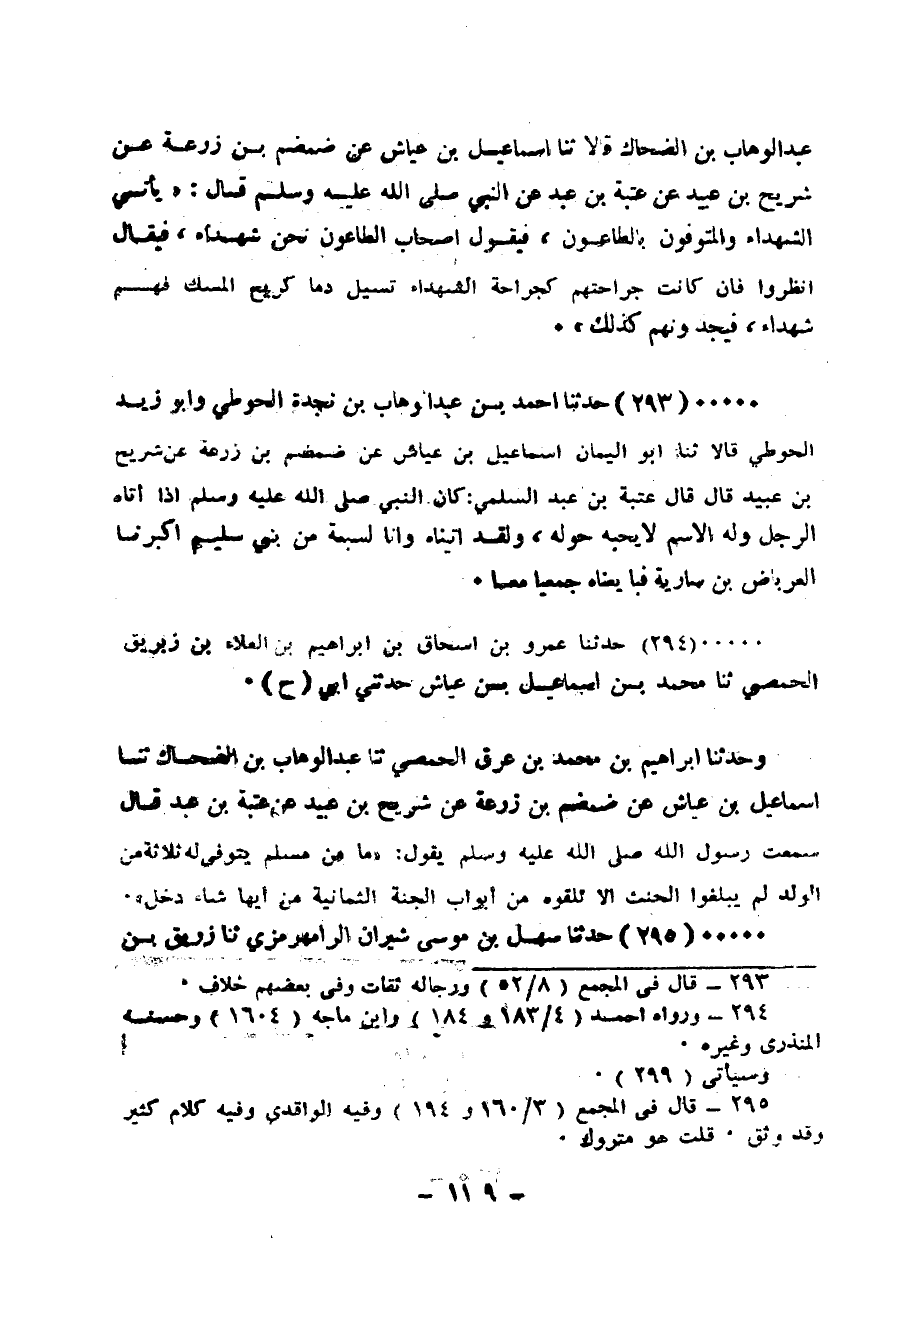 عبدالوهاب بن الضحاك قالا ثنا اسماعيل بن عياش عن ضمضم بن زرعة عن
شريح بن عبيد عن عتبة بن عبد عن النبي صلى الله عليه وسلم قال : « يأتي
الشهداء والمتوفون بالطاعون ، فيقول اصحاب الطاعون نحن شهداء ، فيقال
انظروا فان كانت جراحتهم كجراحة الشهداء تسيل دما كريح المسك فهم
شهداء ، فيجدونهم كذلك » ٠
٠٠٠٠٠ ( ٢٩٣ ) حدثنا احمد بن عبدالوهاب بن نجدة الحوطي وابو زيد
الحوطي قالا ثنا ابو اليمان اسماعيل بن عياش عن ضمضم بن زرعة عن شريح
بن عبيد قال قال عتبة بن عبد السلمي: كان النبي صلى الله عليه وسلم اذا أتاه
الرجل وله الاسم لايحبه حوله ، ولقد اتيناه وانا لسبعة من بني سليم اكبرنا
العرباض بن سارية فبايعناه جمعيا معا ٠
٠٠٠٠٠(٢٩٤) حدثنا عمرو بن اسحاق بن ابراهيم بن العلاء بن زبريق
الحمصي ثنا محمد بن اسماعيل بن عياش حدثني ابي ( ح ) ٠
وحدثنا ابراهيم بن محمد بن عرق الحمصي ثنا عبدالوهاب بن الضحاك ثنا
اسماعيل بن عياش عن ضمضم بن زرعة عن شريح بن عبيد عن عتبة بن عبد قال
سمعت رسول الله صلى الله عليه وسلم يقول: «ما من مسلم يتوفى له ثلاثة من
الولد لم يبلغوا الحنث الا تلقوه من أبواب الجنة الثمانية من أيها شاء دخل»٠
٠٠٠٠٠ ( ٢٩٥ ) حدثنا سهل بن موسى شيران الرامهرمزي ثنا زريق بن
٢٩٣ ــ قال فى المجمع ( ٥٢/٨ ) ورجاله ثقات وفى بعضهم خلاف ٠
٢٩٤ ــ ورواه احمد ( ١٨٣/٤ و ١٨٤ ) وابن ماجه ( ١٦٠٤ ) وحسنه
المنذرى وغيره ٠
وسيأتى ( ٢٩٩ ) ٠
٢٩٥ ــ قال فى المجمع ( ١٦٠/٣ و ١٩٤ ) وفيه الواقدي وفيه كلام كثير
وقد وثق ٠ قلت هو متروك ٠
– ١١٩ –